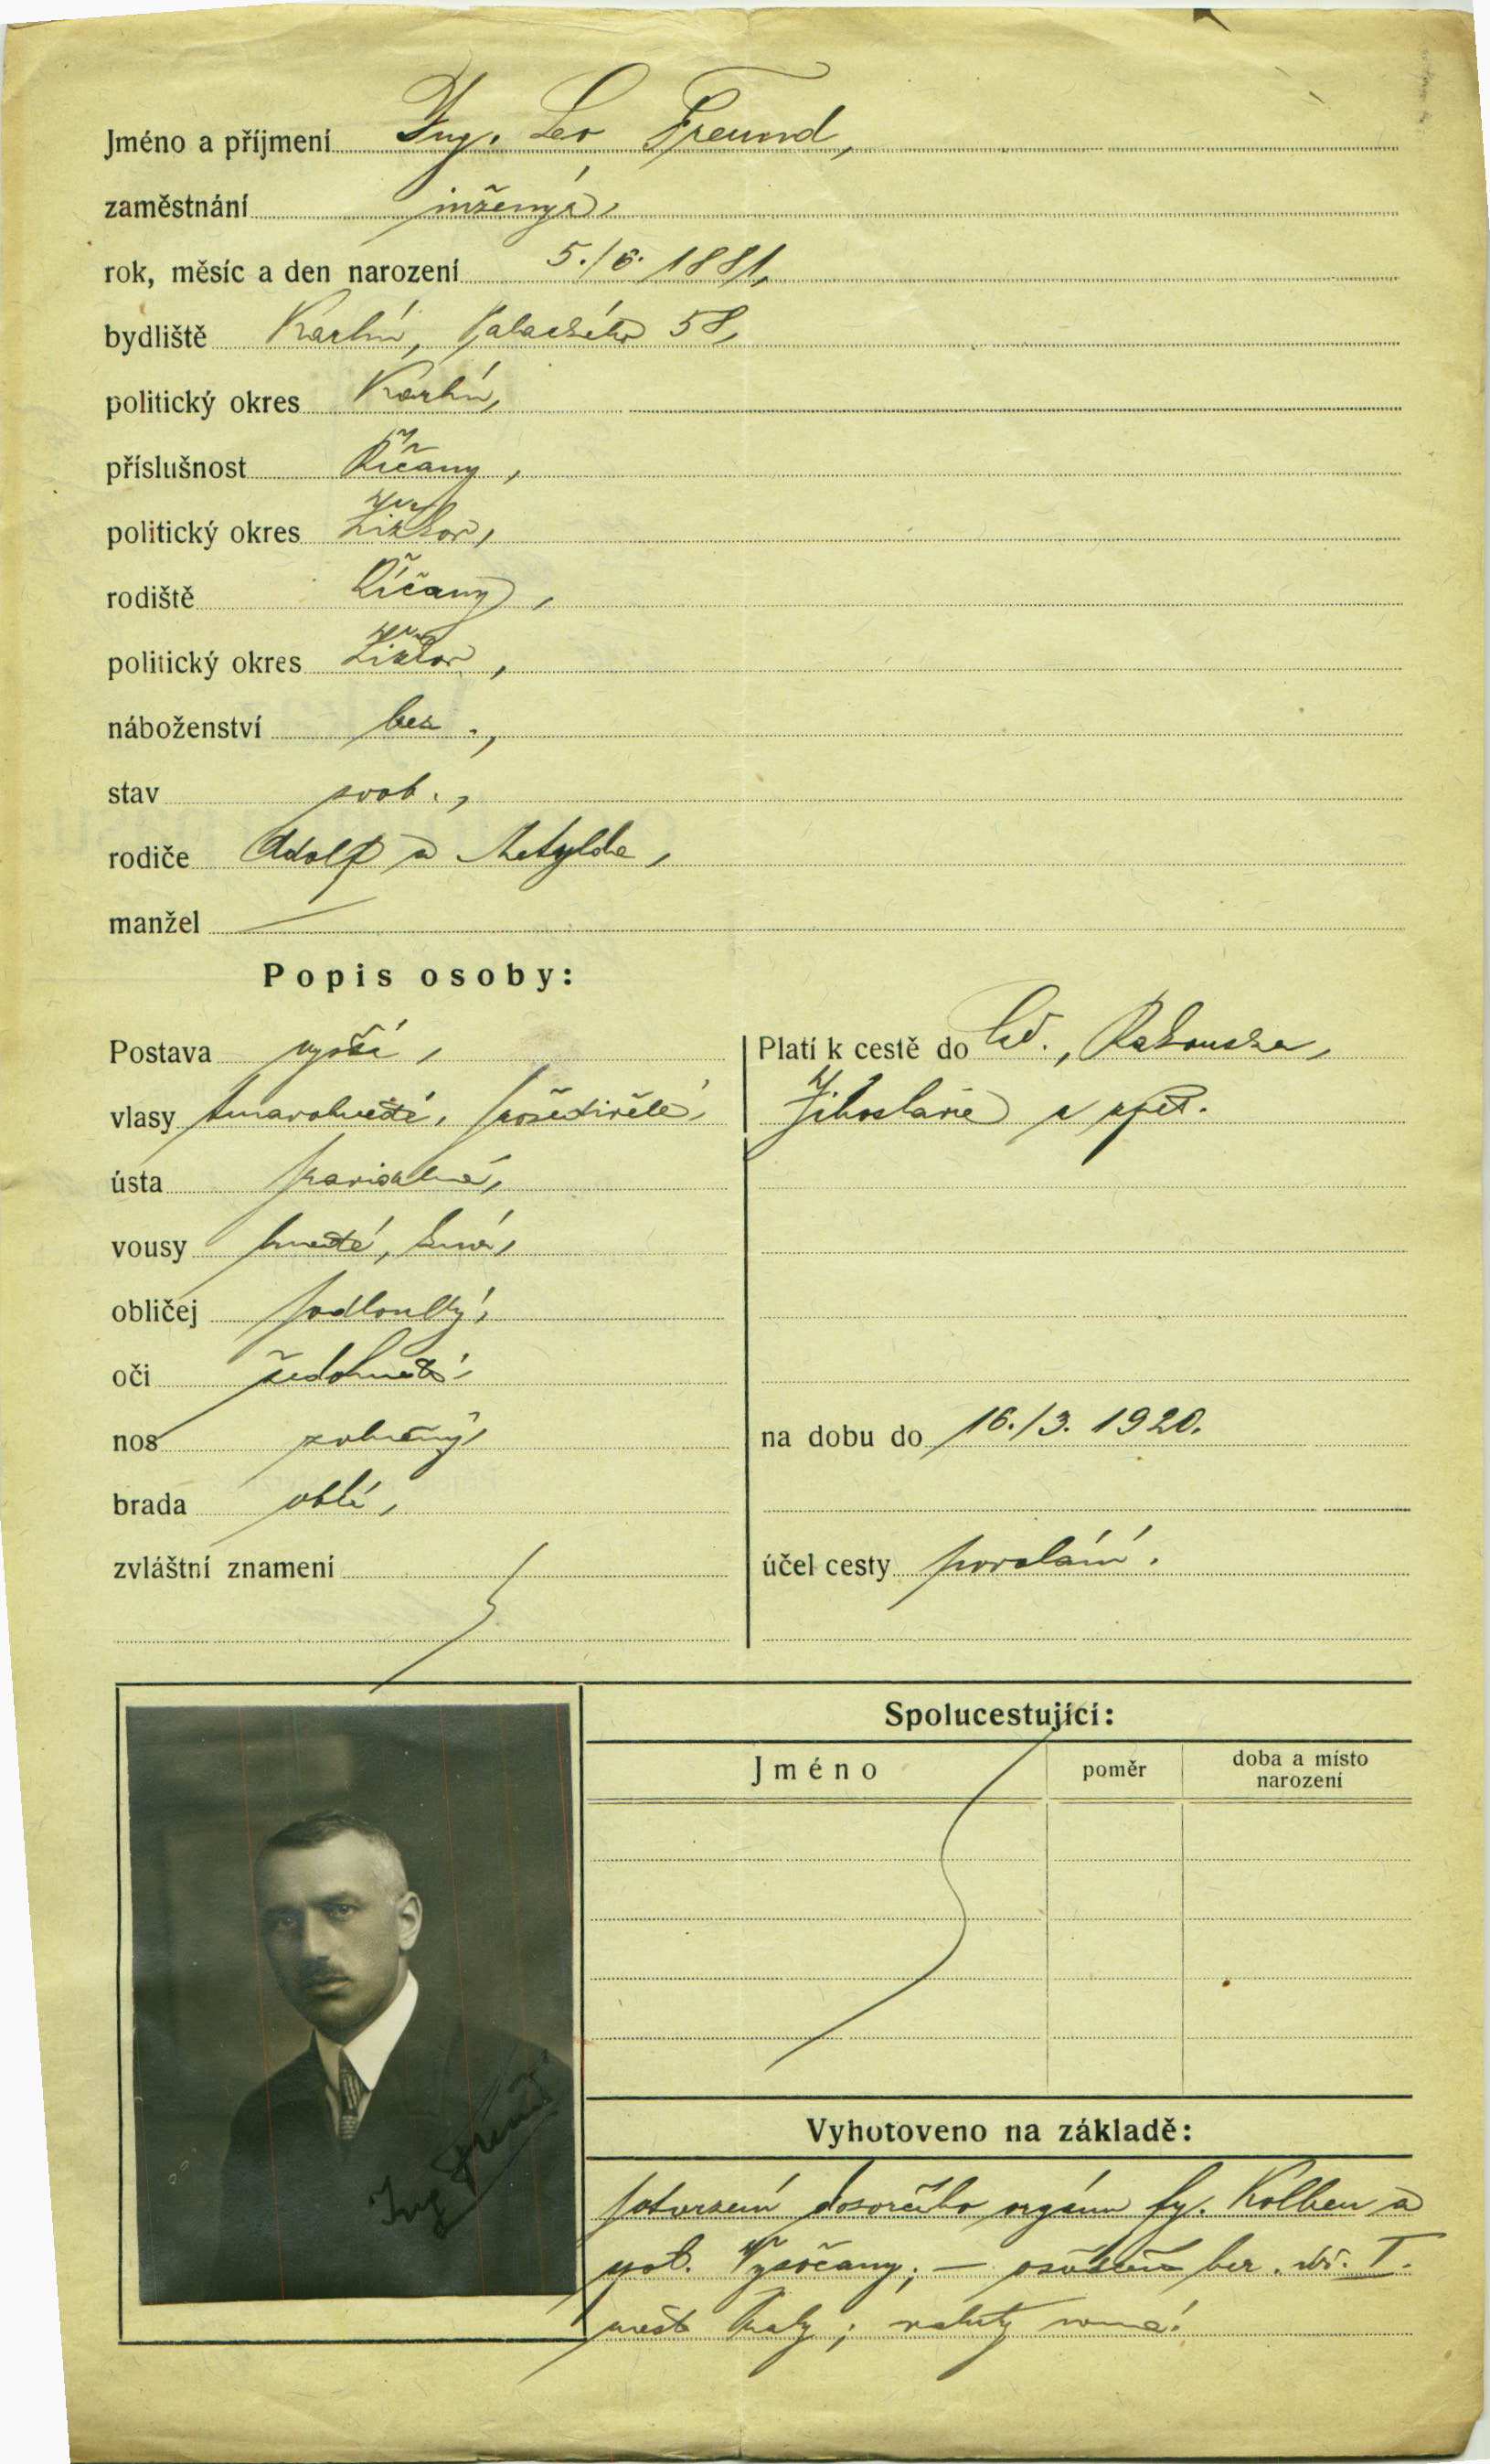 Jméno a příjmení Ing. Leo Freund,
zaměstnání inženýr,
rok, měsíc a den narození 5./6. 1881,
bydliště Karlín, Palackého 58,
politický okres Karlín,
příslušnost Říčany,
politický okres Žižkov,
rodiště Říčany,
politický okres Žižkov,
náboženství bez.,
stav svob.,
rodiče Adolf a Matylda,
manžel
Popis osoby:
Postava vyšší,
vlasy tmavohnědé, prošedivělé,
ústa pravidelná,
vousy hnědé,
obličej podlouhlý,
oči šedohnědé,
nos
brada oblá,
zvláštní znamení
Platí k cestě do Rakouska,
Jihoslavie a zpět.
na dobu do 16./3. 1920.
účel cesty povolání.
Spolucestující:
Jméno poměr doba a místo narození
Ing Freund
Vyhotoveno na základě:
potvrzení dozorčího orgánu fy. Kolben a
spol. Vysočany; — ber. I.
Prahy;